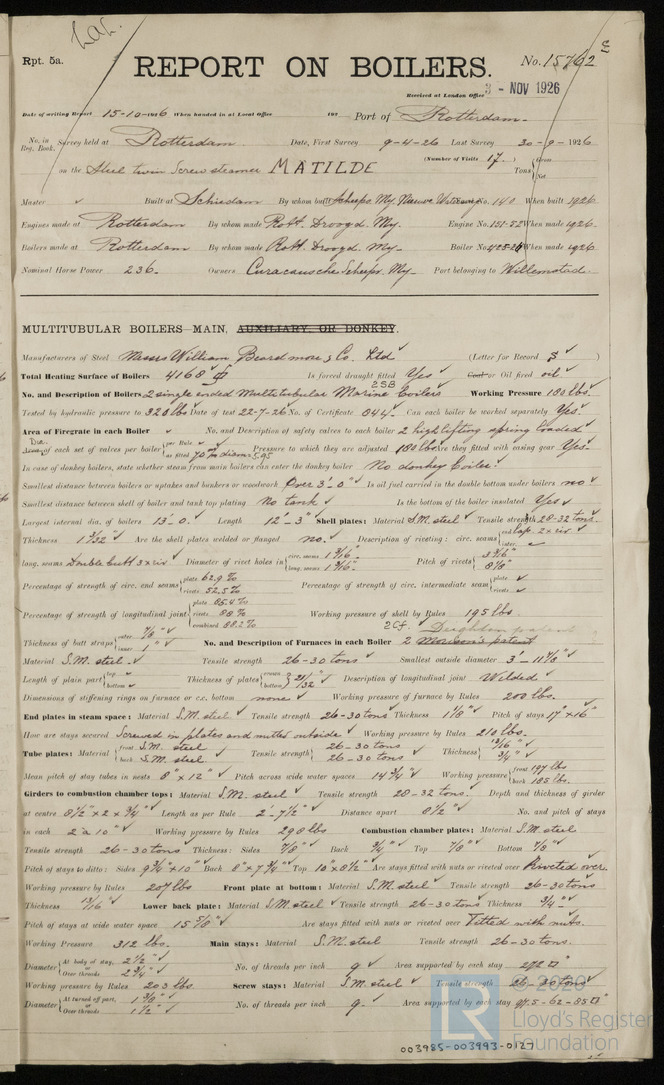 Lar.
Rpt. 5a.
REPORT ON BOILERS.
No. 15762
Received at London Office 3 - NOV 1926
Date of writing Report 15-10-1926 When handed in at Local Office 192 Port of Rotterdam.
No. in Reg. Book. Survey held at Rotterdam Date, First Survey 9-4-26 Last Survey 30-9-1926
on the Steel twin Screw steamer MATILDE (Number of Visits 17.) Tons Gross Net
Master ✓ Built at Schiedam By whom built Scheeps My. Nieuwe Waterweg No. 140 When built 1926
Engines made at Rotterdam By whom made Rott. Droogd. My. Engine No. 151-52 When made 1926.
Boilers made at Rotterdam By whom made Rott. Droogd. My. Boiler No. When made 1926
Nominal Horse Power 236. Owners Curacaosche Scheeps. My. Port belonging to Willemstad.
MULTITUBULAR BOILERS—MAIN, AUXILIARY, OR DONKEY.
Manufacturers of Steel Messrs William Beardmore & Co. Ltd (Letter for Record S ✓)
Total Heating Surface of Boilers 4168 Is forced draught fitted Yes ✓ Coal or Oil fired oil ✓
No. and Description of Boilers 2 single ended Multitubular Marine boilers 2SB Working Pressure 180 lbs.
Tested by hydraulic pressure to 320 lbs Date of test 22-7-26 No. of Certificate 844. Can each boiler be worked separately Yes. ✓
Area of Firegrate in each Boiler ✓ No. and Description of safety valves to each boiler 2 high lifting spring loaded
Dia. Area of each set of valves per boiler per Rule ✓ as fitted 70 m diam 5.95 Pressure to which they are adjusted 180 lbs Are they fitted with easing gear Yes.
In case of donkey boilers, state whether steam from main boilers can enter the donkey boiler No donkey boiler. ✓
Smallest distance between boilers or uptakes and bunkers or woodwork Over 3'-0" ✓ Is oil fuel carried in the double bottom under boilers no. ✓
Smallest distance between shell of boiler and tank top plating No tank ✓ Is the bottom of the boiler insulated Yes ✓
Largest internal dia. of boilers 13'-0. ✓ Length 12'-3" ✓ Shell plates: Material S.M. steel ✓ Tensile strength 28-32 tons.
Thickness 1 1/32 ✓ Are the shell plates welded or flanged no. ✓ Description of riveting: circ. seams end lap. 2x riv ✓ inter. ✓
long. seams Double butt 3x riv ✓ Diameter of rivet holes in circ. seams 1 3/16" long. seams 1 3/16" Pitch of rivets 3 3/16" 8 1/8"
Percentage of strength of circ. end seams plate 62.9 % rivets 52.5 % Percentage of strength of circ. intermediate seam plate ✓ rivets ✓
Percentage of strength of longitudinal joint plate 85.4 % rivets 88 % combined 88.2 % Working pressure of shell by Rules 195 lbs
Thickness of butt straps outer 7/8" ✓ inner 1" ✓ No. and Description of Furnaces in each Boiler 2 Morison's patent 2Cf. Deighton patent
Material S.M. steel. ✓ Tensile strength 26-30 tons Smallest outside diameter 3'-11 5/8" ✓
Length of plain part top ✓ bottom ✓ Thickness of plates crown bottom 21/32" ✓ Description of longitudinal joint Welded ✓
Dimensions of stiffening rings on furnace or c.c. bottom none ✓ Working pressure of furnace by Rules 200 lbs.
End plates in steam space: Material S.M. steel ✓ Tensile strength 26-30 tons Thickness 1 1/8" ✓ Pitch of stays 17" x 16"
How are stays secured Screwed in plates and nutted outside ✓ Working pressure by Rules 210 lbs.
Tube plates: Material front S.M. steel back S.M. steel Tensile strength 26-30 tons 26-30 tons Thickness 13/16" ✓ 3/4" ✓
Mean pitch of stay tubes in nests 8" x 12" ✓ Pitch across wide water spaces 14 3/4" ✓ Working pressure front 197 lbs back 185 lbs.
Girders to combustion chamber tops: Material S.M. steel ✓ Tensile strength 28-32 tons. Depth and thickness of girder
at centre 8 1/2" x 2 x 3/4" ✓ Length as per Rule 2'-7 1/2" ✓ Distance apart 8 1/2" ✓ No. and pitch of stays
in each 2 à 10" ✓ Working pressure by Rules 298 lbs Combustion chamber plates: Material S.M. steel
Tensile strength 26-30 tons ✓ Thickness: Sides 7/8" ✓ Back 3/4" ✓ Top 7/8" ✓ Bottom 7/8" ✓
Pitch of stays to ditto: Sides 9 3/4" x 10" ✓ Back 8" x 7 3/4" ✓ Top 10" x 8 1/2" ✓ Are stays fitted with nuts or riveted over Riveted over.
Working pressure by Rules 207 lbs Front plate at bottom: Material S.M. steel ✓ Tensile strength 26-30 tons
Thickness 13/16" ✓ Lower back plate: Material S.M. steel ✓ Tensile strength 26-30 tons Thickness 3/4" ✓
Pitch of stays at wide water space 15 5/8" ✓ Are stays fitted with nuts or riveted over Fitted with nuts.
Working Pressure 312 lbs. Main stays: Material S.M. steel Tensile strength 26-30 tons.
Diameter At body of stay, 2 1/2" ✓ or Over threads 2 3/4" ✓ No. of threads per inch 9 ✓ Area supported by each stay 272 □" ✓
Working pressure by Rules 203 lbs Screw stays: Material S.M. steel ✓ Tensile strength 26-30 tons ✓
Diameter At turned off part, 1 3/8" ✓ or Over threads 1 1/2" ✓ No. of threads per inch 9. ✓ Area supported by each stay 97.5-62-85 □"
003985-003993-0127
© 2020
LR
Lloyd's Register
Foundation